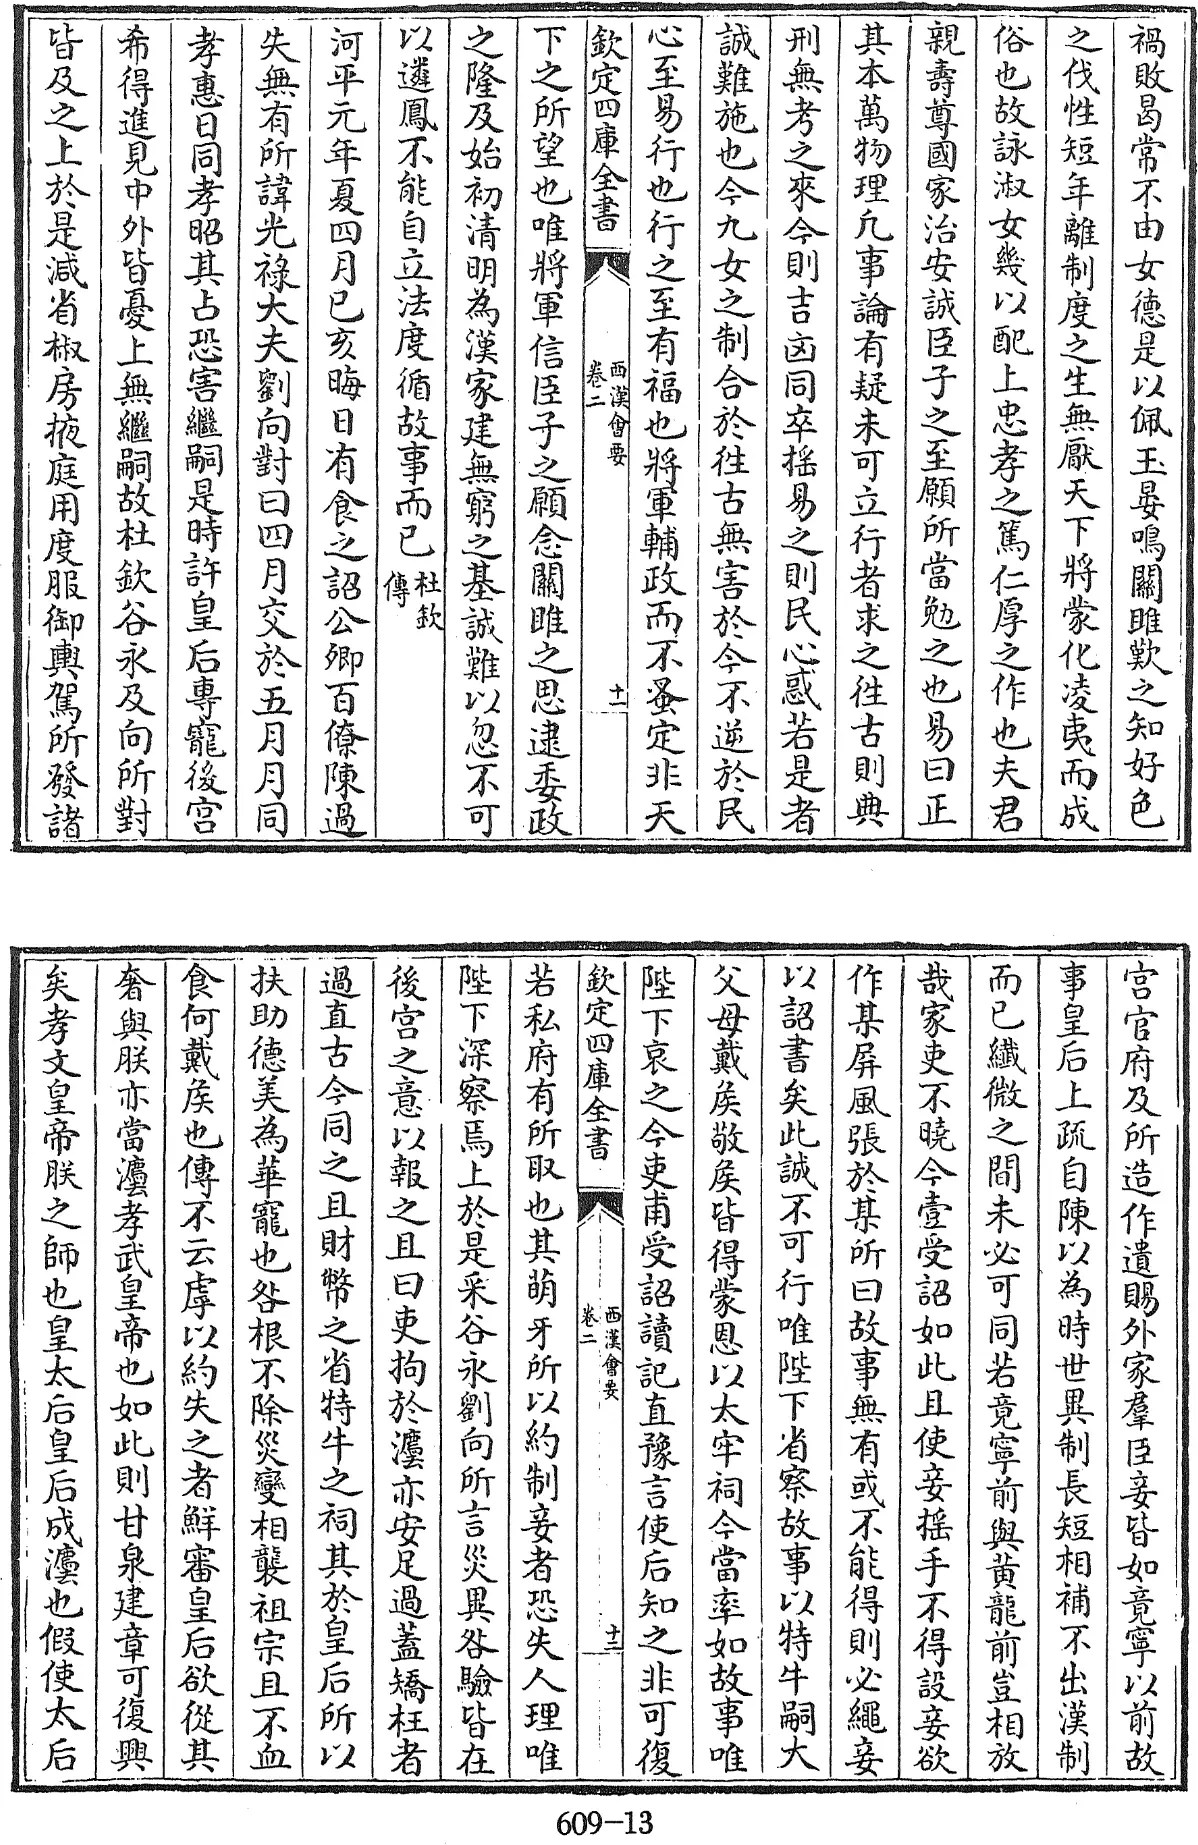 禍敗曷常不由女德是以佩玉晏鳴關雎歎之知好色
之伐性短年離制度之生無厭天下將蒙化凌夷而成
俗也故詠淑女幾以配上忠孝之篤仁厚之作也夫君
親壽尊國家治安誠臣子之至願所當勉之也易曰正
其本萬物理凡事論有疑未可立行者求之徃古則典
刑無考之來今則吉凶同卒揺易之則民心惑若是者
誠難施也今九女之制合於徃古無害於今不逆於民
心至易行也行之至有福也將軍輔政而不蚤定非天
欽定四庫全書
西漢會要
卷二
十一
下之所望也唯將軍信臣子之願念關雎之思逮委政
之隆及始初清明為漢家建無窮之基誠難以忽不可
以遴鳳不能自立法度循故事而已
杜欽
傳
河平元年夏四月己亥晦日有食之詔公卿百僚陳過
失無有所諱光祿大夫劉向對曰四月交於五月月同
孝惠日同孝昭其占恐害繼嗣是時許皇后專寵後宮
希得進見中外皆憂上無繼嗣故杜欽谷永及向所對
皆及之上於是減省椒房掖庭用度服御輿駕所發諸
宫官府及所造作遺賜外家羣臣妾皆如竟寧以前故
事皇后上疏自陳以為時世異制長短相補不出漢制
而已纖微之間未必可同若竟寧前與黄龍前豈相放
哉家吏不曉今壹受詔如此且使妾揺手不得設妾欲
作某屏風張於某所曰故事無有或不能得則必繩妾
以詔書矣此誠不可行唯陛下省察故事以特牛嗣大
父母戴侯敬侯皆得蒙恩以太牢祠今當率如故事唯
陛下哀之今吏甫受詔讀記直豫言使后知之非可復
欽定四庫全書
西漢會要
卷二
十二
若私府有所取也其萌牙所以約制妾者恐失人理唯
陛下深察焉上於是采谷永劉向所言災異咎驗皆在
後宫之意以報之且曰吏拘於灋亦安足過蓋矯枉者
過直古今同之且財幣之省特牛之祠其於皇后所以
扶助德美為華寵也咎根不除災變相襲祖宗且不血
食何戴侯也傳不云虖以約失之者鮮審皇后欲從其
奢與朕亦當灋孝武皇帝也如此則甘泉建章可復興
矣孝文皇帝朕之師也皇太后皇后成灋也假使太后
609-13